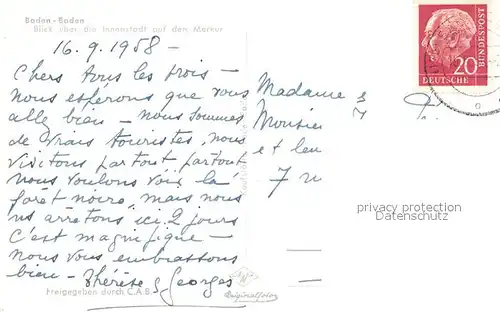 Baden-Baden
Blick über die Innenstadt auf den Merkur
16.9.1958 -
Chers tous les trois -
nous espérons que vous
alle bien - nous sommes
de vrais touristes, nous
visitons partout partout
nous voulons voir la
forêt noire, mais nous
ns arrêtons ici 2 jours
c'est magnifique -
nous vous embrassons
bien - Thérèse & Georges
Freigegeben durch C.A.B.
Originalfoto
Madame &
et leu
7
20
DEUTSCHE
BUNDESPOST
privacy protection
Datenschutz